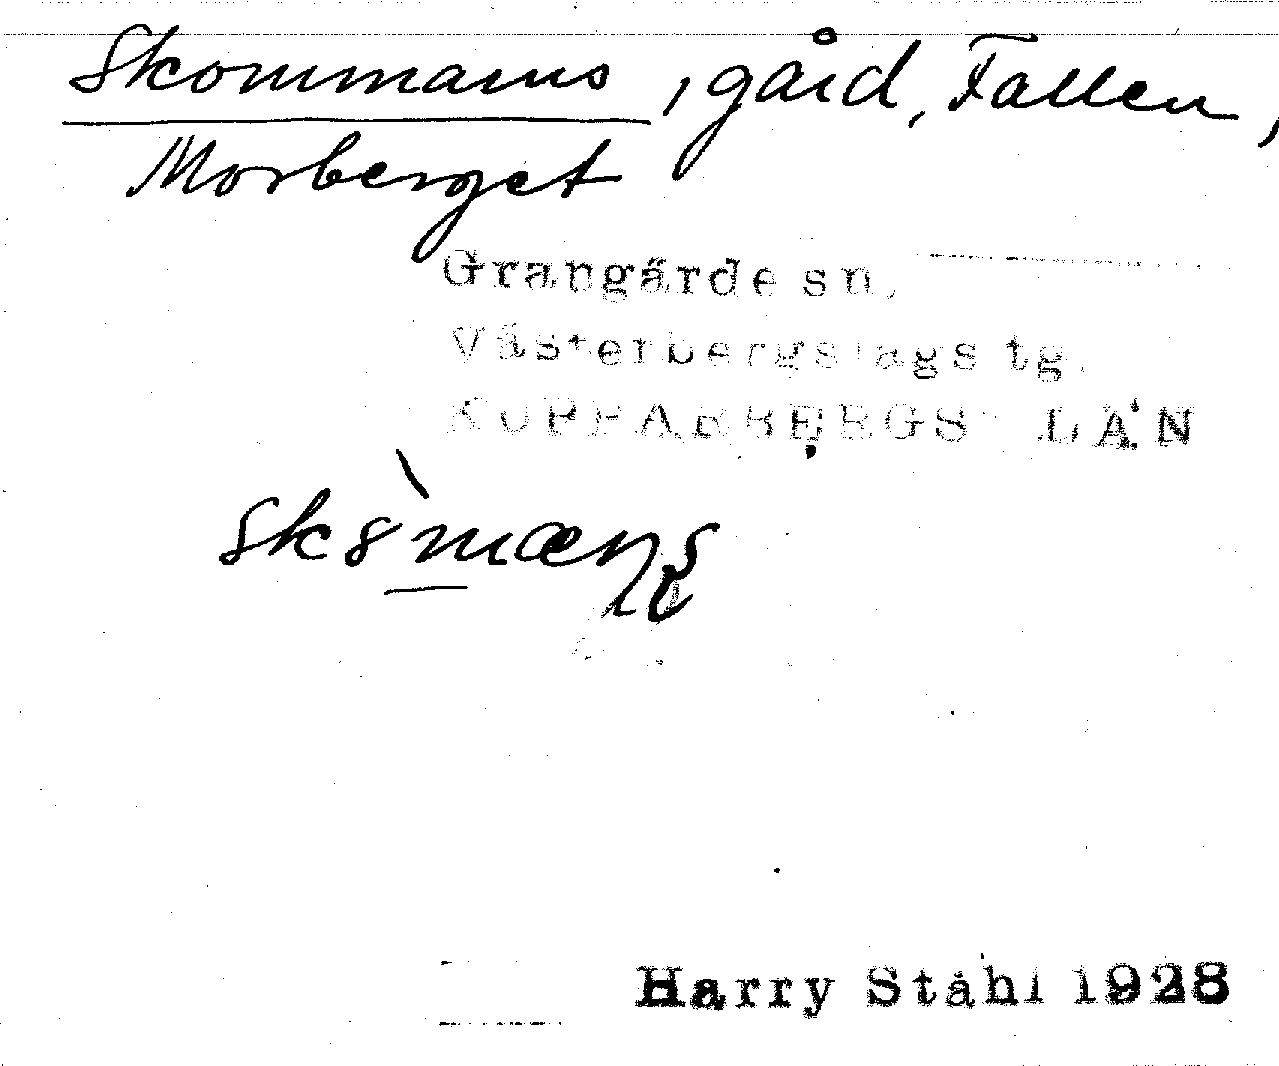 Skommans, gård, Fallen,
Morberget
Grangärde sn.
Västerbergslags tg.
KOPPARBERGS LÄN
Harry Ståhl 1928